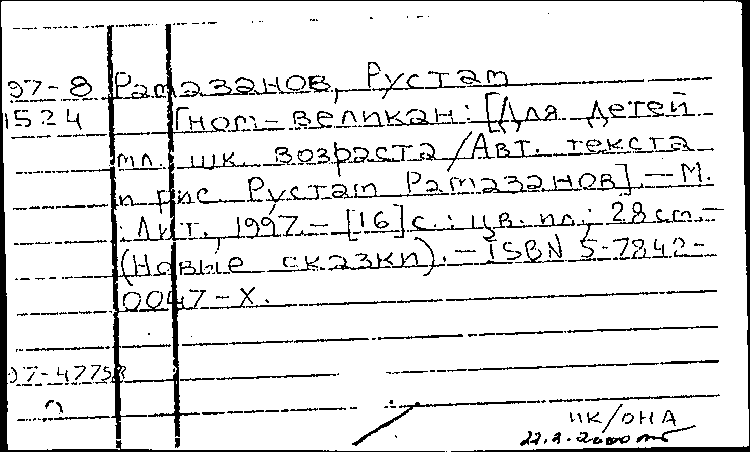 97-8 Рамазанов, Рустам
1524 Гном-великан: [Для детей
мл. шк. возраста/Авт. текста
и рис. Рустам Рамазанов].-М.
: Лит., 1997.- [16] с.: цв. ил.; 28 см.-
(Новые сказки).-ISBN 5-7842-
0047-X.
97-47758
п
ИК/ОНА
22.2.2000